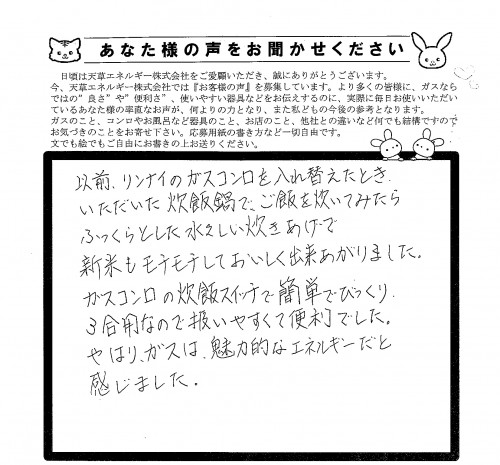 あなた様の声をお聞かせください
日頃は天草エネルギー株式会社をご愛顧いただき、誠にありがとうございます。
今、天草エネルギー株式会社では『お客様の声』を募集しています。より多くの皆様に、ガスなら
ではの“良さ”や“便利さ”、使いやすい器具などをお伝えするのに、実際に毎日お使いいただい
ているあなた様の率直なお声が、何よりの力となり、また私どもの今後の参考となります。
ガスのこと、コンロやお風呂など器具のこと、お店のこと、他社との違いなど何でも結構ですので
お気づきのことをお寄せ下さい。応募用紙の書き方など一切自由です。
文でも絵でもご自由にお書きの上お送りください。
以前、リンナイのガスコンロを入れ替えたとき、
いただいた炊飯鍋で、ご飯を炊いてみたら
ふっくらとした水々しい炊きあげで
新米もモチモチしておいしく出来あがりました。
ガスコンロの炊飯スイッチで簡単でびっくり、
3合用なので扱いやすくて便利でした。
やはり、ガスは、魅力的なエネルギーだと
感じました。